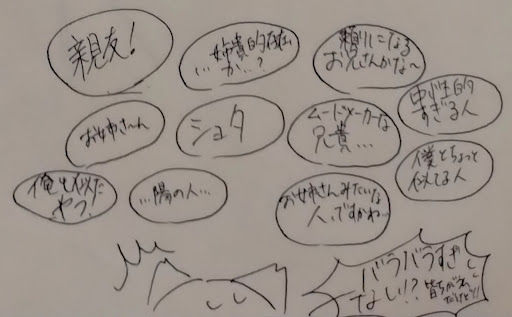 親友!
…姉貴的存在
か…?
頼りになる
お兄さんかな〜
中性的
すぎる人
お姉さ〜ん
ショタ
ムードメーカーな
兄貴…
僕とちょっと
似てる人
俺と似た
やつ?
…陽の人…
お姉さんみたいな
人、ですかね…
バラバラすぎ
ない!?
皆ちがえっ
だけど!!